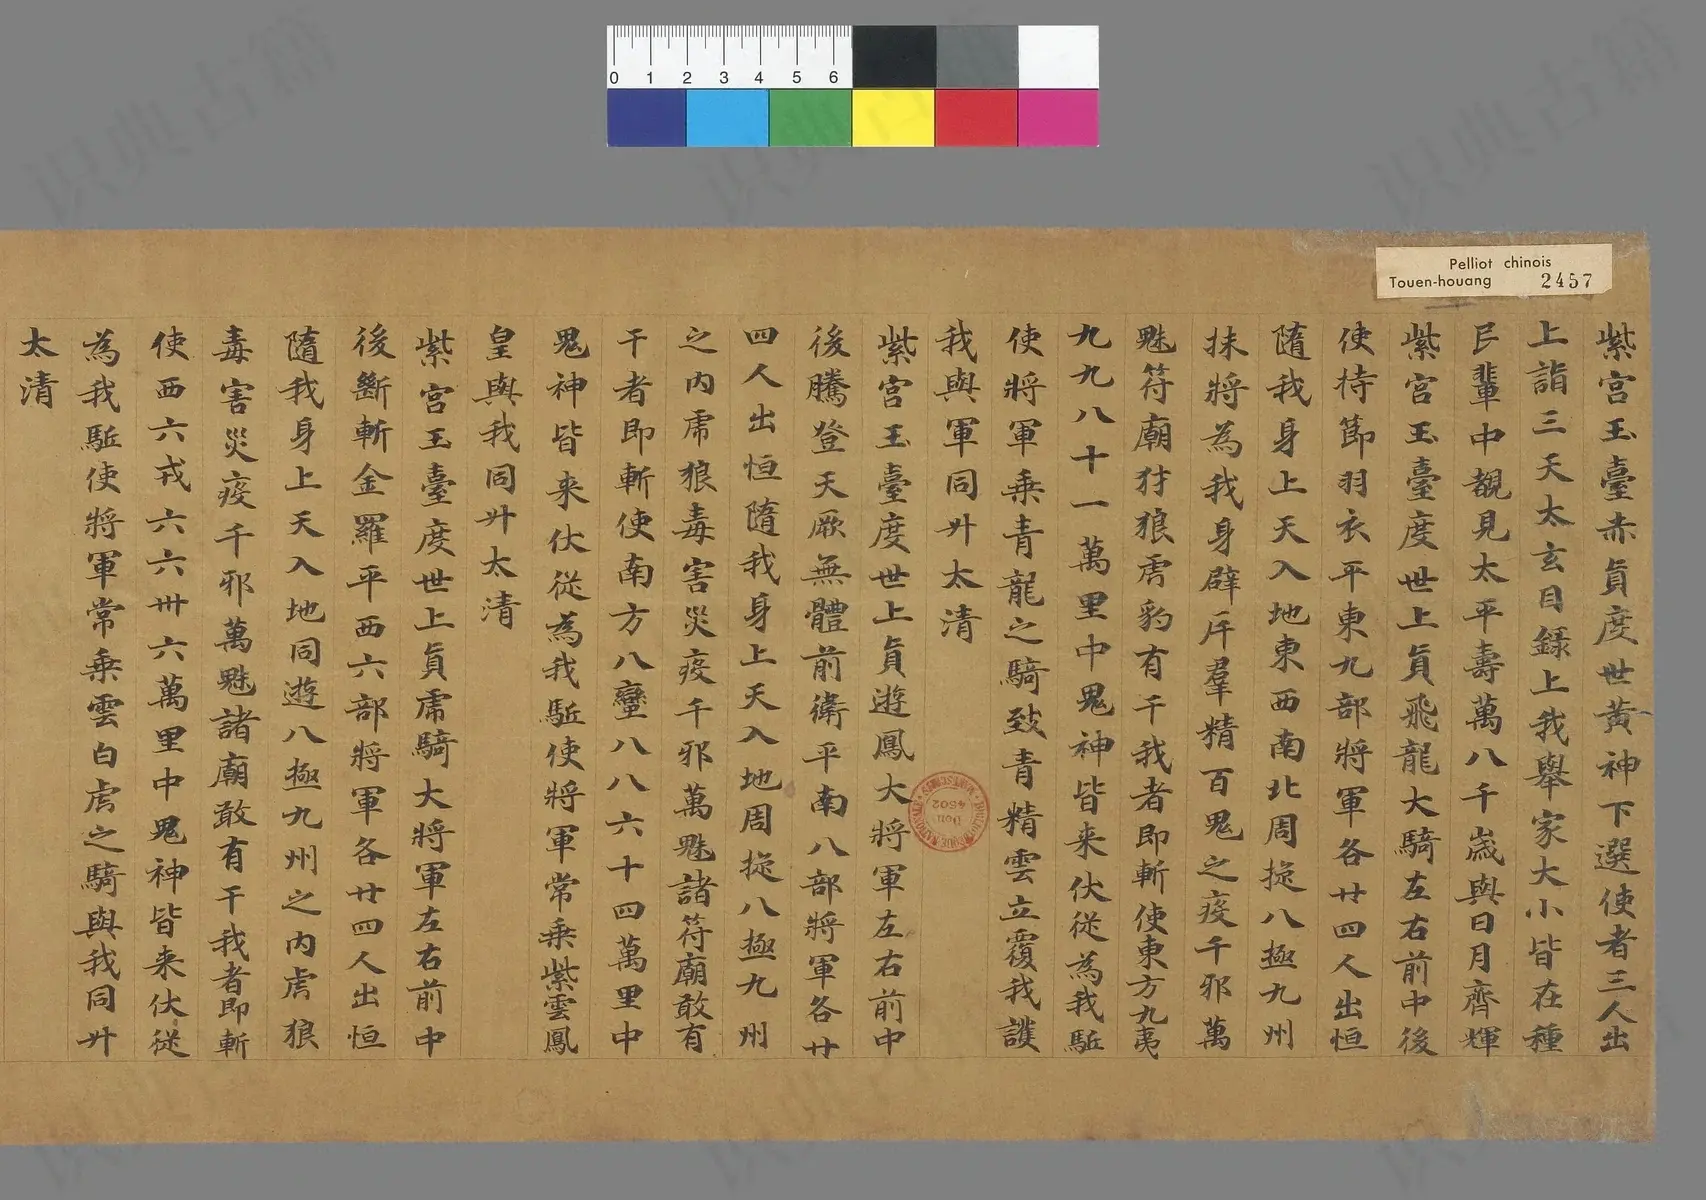 Pelliot chinois
Touen-houang 2457
0 1 2 3 4 5 6
紫宫玉臺赤真度世黄神下選使者三人出
上詣三天太玄目錄上我舉家大小皆在種
民輩中覩見太平壽萬八千歳與日月齊輝
紫宫玉臺度世上真飛龍大騎左右前中後
使持節羽衣平東九部將軍各廿四人出恒
隨我身上天入地東西南北周旋八極九州
抹將為我身辟斥羣精百鬼之疫千邪萬
魅符廟犲狼虎豹有干我者即斬使東方九夷
九九八十一萬里中鬼神皆来伏從為我駈
使將軍乗青龍之騎致青精雲立覆我護
我與軍同升太清
紫宫玉臺度世上真遊鳳大將軍左右前中
後騰登天厥無體前衛平南八部將軍各廿
四人出恒隨我身上天入地周旋八極九州
之内虎狼毒害災疫千邪萬魅諸符廟敢有
干者即斬使南方八蠻八八六十四萬里中
鬼神皆来伏從為我駈使將軍常乗紫雲鳳
皇與我同升太清
紫宫玉臺度世上真虎騎大將軍左右前中
後斷斬金羅平西六部將軍各廿四人出恒
隨我身上天入地同遊八極九州之内虎狼
毒害災疫千邪萬魅諸廟敢有干我者即斬
使西六戎六六卅六萬里中鬼神皆来伏從
為我駈使將軍常乗雲白虎之騎與我同升
太清
BIBLIOTHÈQUE NATIONALE MANUSCRITS
Don
4502
识典古籍